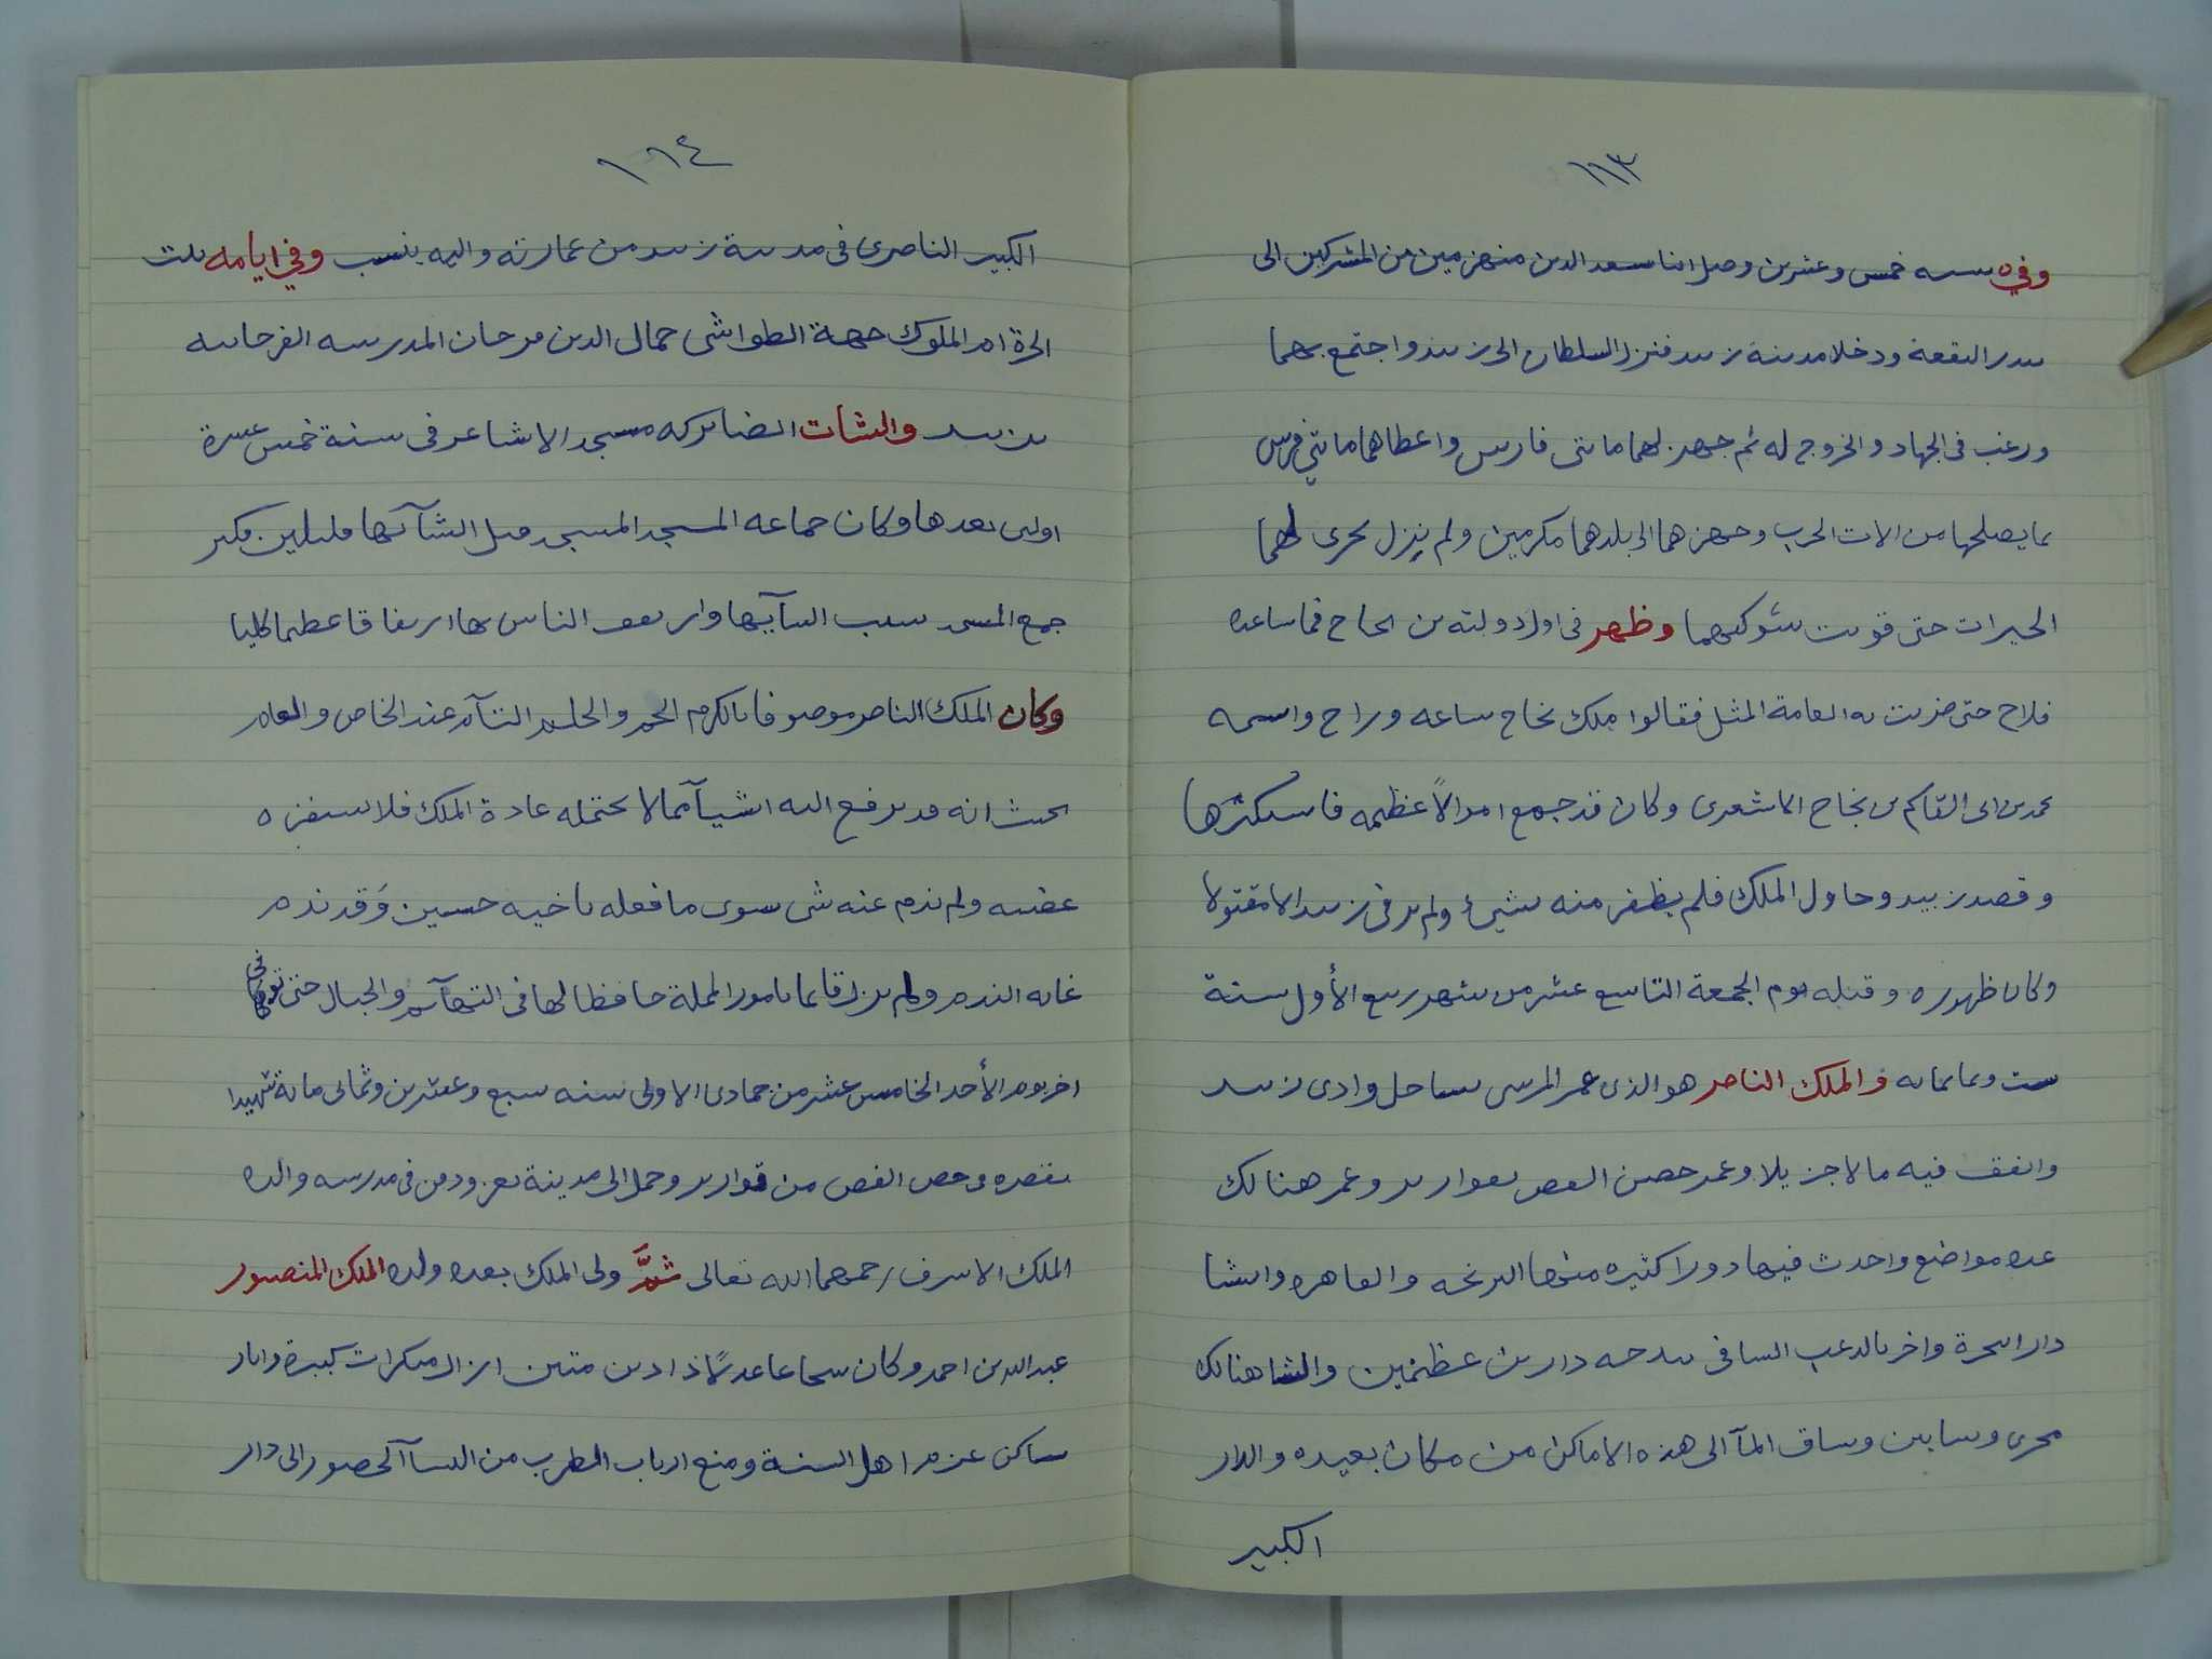 ١١٣
وفي سنه خمس وعشرين وصل ابنا سعد الدين منهزمين من المشركين الى
بندر البقعة ودخلا مدينة زبيد فنزل السلطان الى زبيد واجتمع بهما
ورغب فى الجهاد والخروج له ثم جهز لهما مائتى فارس واعطاهما مائتي فرس
بما يصلحها من الات الحرب وجهزهما الى بلدهما مكرمين ولم يزل يجرى لهما
الخيرات حتى قويت شوكتهما وظهر فى اول دولته بن نجاح فما ساعده
فلاح حتى ضربت به العامة المثل فقالوا ملك نجاح ساعه وراح واسمه
محمد بن ابى القاسم بن نجاح الاشعرى وكان قد جمع اموالاً عظيمه فاستكثرها
وقصد زبيد وحاول الملك فلم يظفر منه بشيئ ولم ير فى زبيد الا مقتولا
وكان ظهوره وقتله يوم الجمعة التاسع عشر من شهر ربيع الأول سنة
ست وثمانمائه والملك الناصر هو الذى عمر المرسى بساحل وادى زبيد
وانفق فيه مالا جزيلا وعمر حصن الفص بقوارير وعمر هنالك
عده مواضع واحدث فيها دورا كثيره منها البرغه والقاهره وانشا
دار السحرة واخر بالدعب السافى دارين عظيمين وانشا هنالك
مجرى وبساتين وساق المآ الى هذه الاماكن من مكان بعيده والدار
الكبير
١١٤
الكبير الناصرى فى مدينة زبيد من عمارته واليه ينسب وفي ايامه بنت
الحرة ام الملوك جهة الطواشى جمال الدين مرجان المدرسه الفرحانيه
بزبيد وانشات ايضا بركه مسجد الاشاعر فى سنة خمس عشرة
اوالتى بعدها وكان جماعه المسجد المسجد قبل انشآئها قليلين فكثر
جمع المسجد بسبب انشآئها وارتفق الناس بها ارتفاقا عظيما كليا
وكان الملك الناصر موصوفا بالكرم الجم والحلم التآم عند الخاص والعام
بحيث انه قد يرفع اليه اشيآ مما لا تحتمله عادة الملك فلا يستفزه
غضبه ولم يذم عنه شى سوى ما فعله باخيه حسين وَقد ندم
غايه الندم ولم يزل قائما بامور المملكة حافظا لها فى التهآئم والجبال حتى توفى
اخر يوم الأحد الخامس عشر من جمادى الاولى سنه سبع وعشرين وثمانى مائة شهيدا
بقصره فى حصن الفص من قوارير وحمل الى مدينة تعز ودفن فى مدرسه والده
الملك الاشرف رحمهما الله تعالى ثمَّ ولى الملك بعده ولده الملك المنصور
عبد الله بن احمد وكان شجاعا عدلاً ذا دين متين ازال منكرات كبيرة واثار
ساكن عزم اهل السنة ومنع ارباب الطرب من النسآ الحضور الى دار